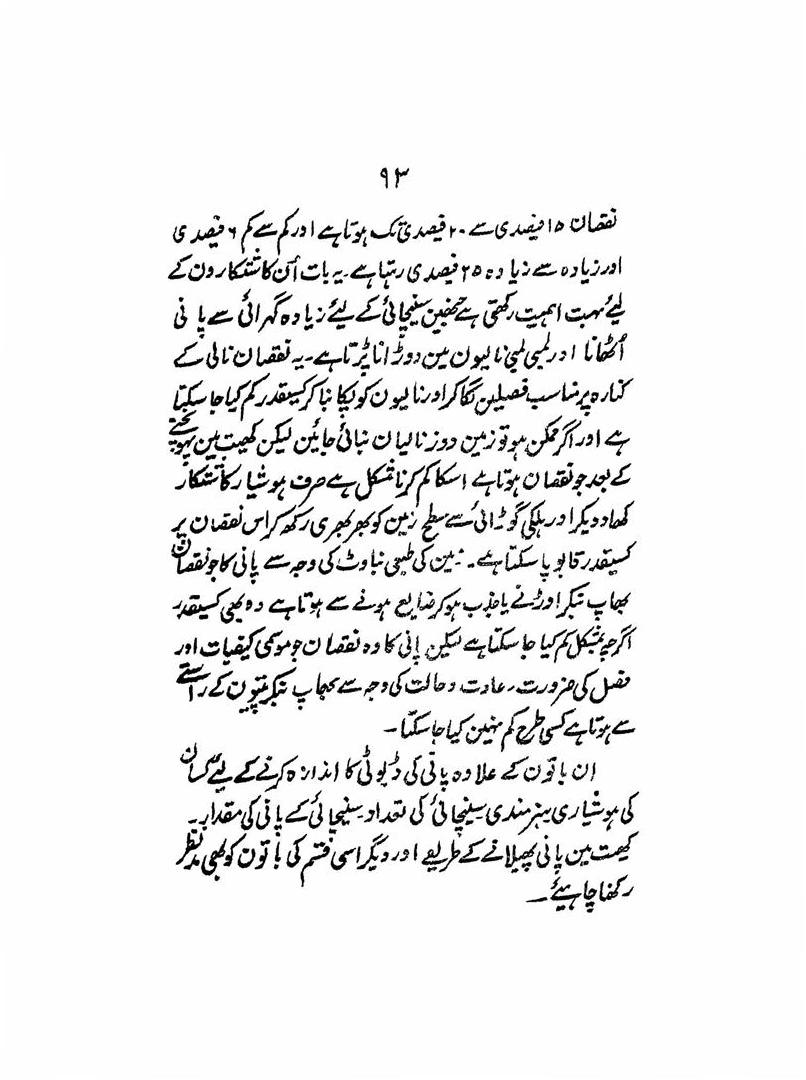 ۹۳
نقصان ۱۵ فیصدی سے ۲۰ فیصدی تک ہوتا ہے اور کم سے کم ۶ فیصدی
اور زیادہ سے زیادہ ۲۵ فیصدی رہتا ہے۔ یہ بات اُن کاشتکارون کے
لیٔے بہت اہمیت رکھتی ہے جنھین سینچائی کے لیٔے زیادہ گہرائی سے پانی
اُٹھانا اور لمبی لمبی نالیون مین دوڑانا پڑتا ہے۔ یہ نقصان نالی کے
کنارہ پر مناسب فصلین لگا کر اور نالیون کو پکا بنا کر کسیقدر کم کیا جا سکتا
ہے اور اگر ممکن ہو تو زمین دوز نالیان بنائی جائین لیکن کھیت مین پہونچنے
کے بعد جو نقصان ہوتا ہے اسکا کم کرنا مشکل ہے صرف ہوشیار کاشتکار
کھاد دیکر اور ہلکی گوڑائی سے سطح زمین کو بھربھری رکھ کر اس نقصان پر
کسیقدر قابو پا سکتا ہے۔ زمین کی طبعی بناوٹ کی وجہ سے پانی کا جو نقصان
بھاپ بنکر اوڑنے یا جذب ہو کر ضایع ہونے سے ہوتا ہے وہ بھی کسیقدر
اگرچہ بمشکل کم کیا جا سکتا ہے لیکن پانی کا وہ نقصان جو موسمی کیفیات اور
فصل کی ضرورت، عادت و حالت کی وجہ سے بھاپ بنکر پتیون کے راستے
سے ہوتا ہے کسی طرح کم نہین کیا جا سکتا۔
ان باتون کے علاوہ پانی کی ڈیوٹی کا اندازہ کرنے کے لیٔے کسان
کی ہوشیاری ہنرمندی سینچائی کی تعداد۔ سینچائی کے پانی کی مقدار۔
کھیت مین پانی پھیلانے کے طریقے اور دیگر اسی قسم کی باتون کو بھی مدنظر
رکھنا چاہیٔے۔